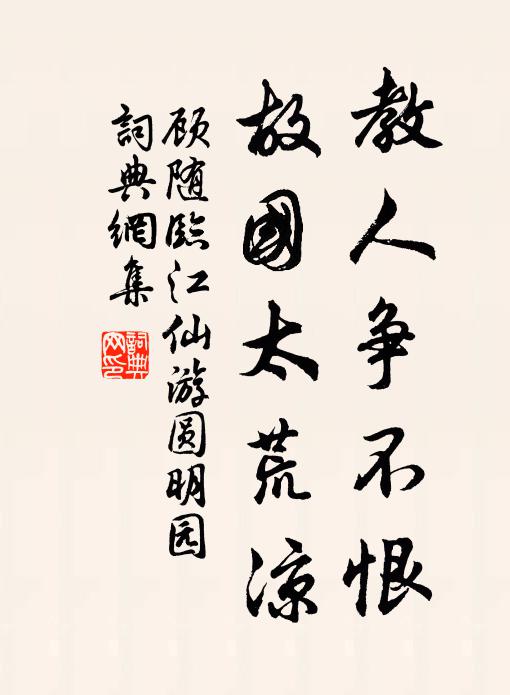 教人争不恨
故國太荒凉
顾随臨江仙游圆明园
詞典網集
詞典網印